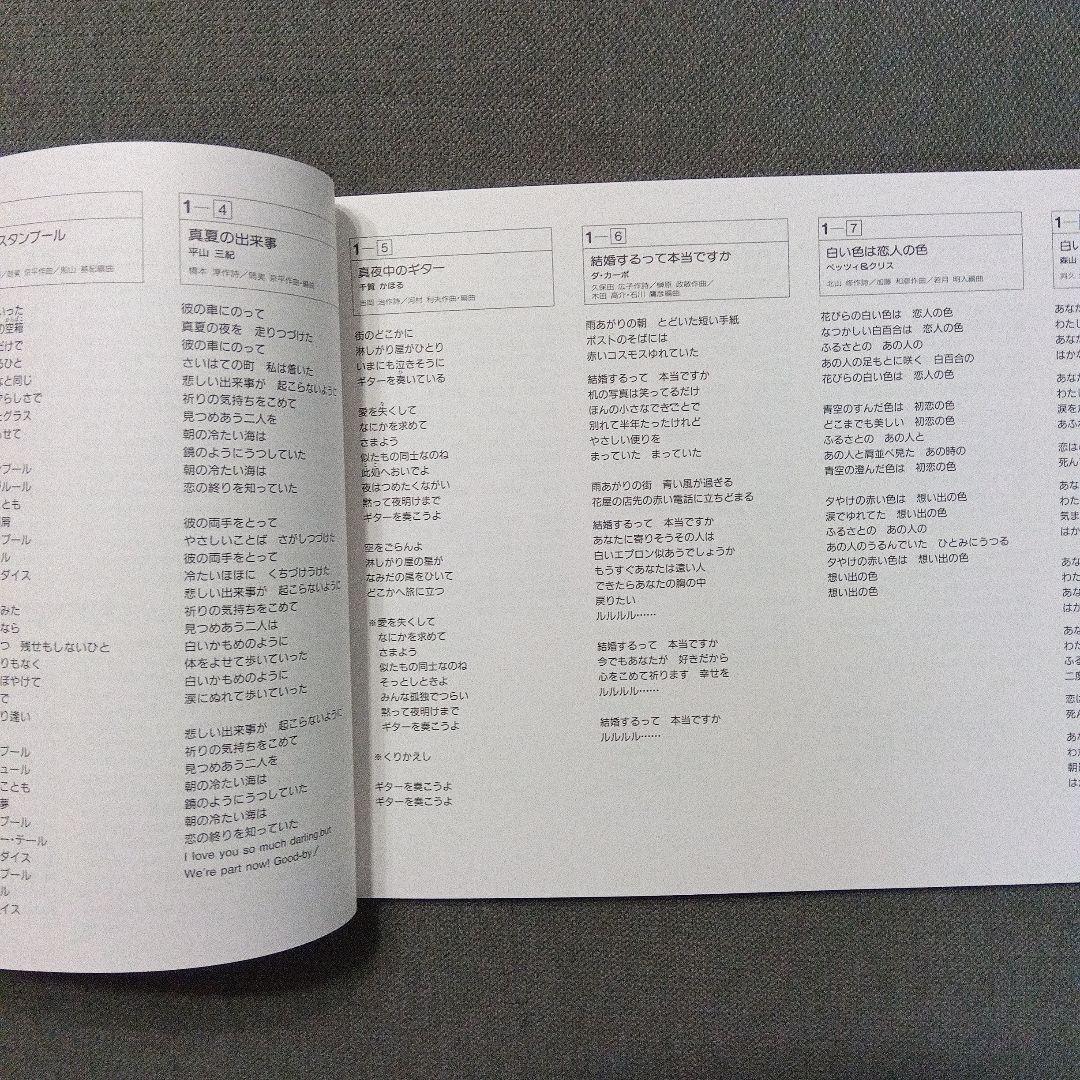 スタンブール
いった
の空箱
だけで
るひと
なと同じ
とグラス
ンブール
ル
ダイス
なら
つ 残せもしないひと
りもなく
ぼやけて
で
り逢い
プール
ュール
ことも
夢
ブール
ー・テール
ダイス
プール
ル
イス
1―4
真夏の出来事
平山 三紀
橋本 淳作詩／筒美 京平作曲・編曲
彼の車にのって
真夏の夜を 走りつづけた
彼の車にのって
さいはての町 私は着いた
悲しい出来事が 起こらないように
祈りの気持ちをこめて
見つめあう二人を
朝の冷たい海は
鏡のようにうつしていた
朝の冷たい海は
恋の終りを知っていた
彼の両手をとって
やさしいことば さがしつづけた
彼の両手をとって
冷たいほほに くちづけうけた
悲しい出来事が 起こらないように
祈りの気持ちをこめて
見つめあう二人は
白いかもめのように
体をよせて歩いていった
白いかもめのように
涙にぬれて歩いていった
悲しい出来事が 起こらないように
祈りの気持ちをこめて
見つめあう二人を
朝の冷たい海は
鏡のようにうつしていた
朝の冷たい海は
恋の終りを知っていた
I love you so much darling,but
We're part now! Good-by!
1―5
真夜中のギター
千賀 かほる
吉岡 治作詩／河村 利夫作曲・編曲
街のどこかに
淋しがり屋がひとり
いまにも泣きそうに
ギターを奏いている
愛を失くして
なにかを求めて
さまよう
似たもの同士なのね
此処へおいでよ
夜はつめたくながい
黙って夜明けまで
ギターを奏こうよ
空をごらんよ
淋しがり屋の星が
なみだの尾をひいて
どこかへ旅に立つ
※愛を失くして
なにかを求めて
さまよう
似たもの同士なのね
そっとしときよ
みんな孤独でつらい
黙って夜明けまで
ギターを奏こうよ
※くりかえし
ギターを奏こうよ
ギターを奏こうよ
1―6
結婚するって本当ですか
ダ・カーポ
久保田 広子作詩／榊原 政敏作曲／
木田 高介・石川 鷹彦編曲
雨あがりの朝 とどいた短い手紙
ポストのそばには
赤いコスモスゆれていた
結婚するって 本当ですか
机の写真は笑ってるだけ
ほんの小さなできごとで
別れて半年たったけれど
やさしい便りを
まっていた まっていた
雨あがりの街 青い風が過ぎる
花屋の店先の赤い電話に立ちどまる
結婚するって 本当ですか
あなたに寄りそうその人は
白いエプロン似あうでしょうか
もうすぐあなたは遠い人
できたらあなたの胸の中
戻りたい
ルルルル……
結婚するって 本当ですか
今でもあなたが 好きだから
心をこめて祈ります 幸せを
ルルルル……
結婚するって 本当ですか
ルルルル……
1―7
白い色は恋人の色
ベッツィ&クリス
北山 修作詩／加藤 和彦作曲／若月 明人編曲
花びらの白い色は 恋人の色
なつかしい白百合は 恋人の色
ふるさとの あの人の
あの人の足もとに咲く 白百合の
花びらの白い色は 恋人の色
青空のすんだ色は 初恋の色
どこまでも美しい 初恋の色
ふるさとの あの人と
あの人と肩並べ見た あの時の
青空の澄んだ色は 初恋の色
夕やけの赤い色は 想い出の色
涙でゆれてた 想い出の色
ふるさとの あの人の
あの人のうるんでいた ひとみにうつる
夕やけの赤い色は 想い出の色
想い出の色
想い出の色
1―
白い
森山
あな
わたし
あな
はかな